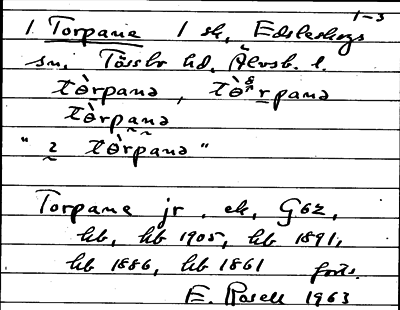 1-3
1 Torpane 1 sk, Edsleskogs
sn, Tössbo hd, Älvsb. l.
tòrpanə, tòrpanə
tòrpanə
"2 tòrpanə"
Torpane jr, ek, G62,
hb, hb 1905, hb 1891,
hb 1886, hb 1861 forts.
E. Rosell 1963